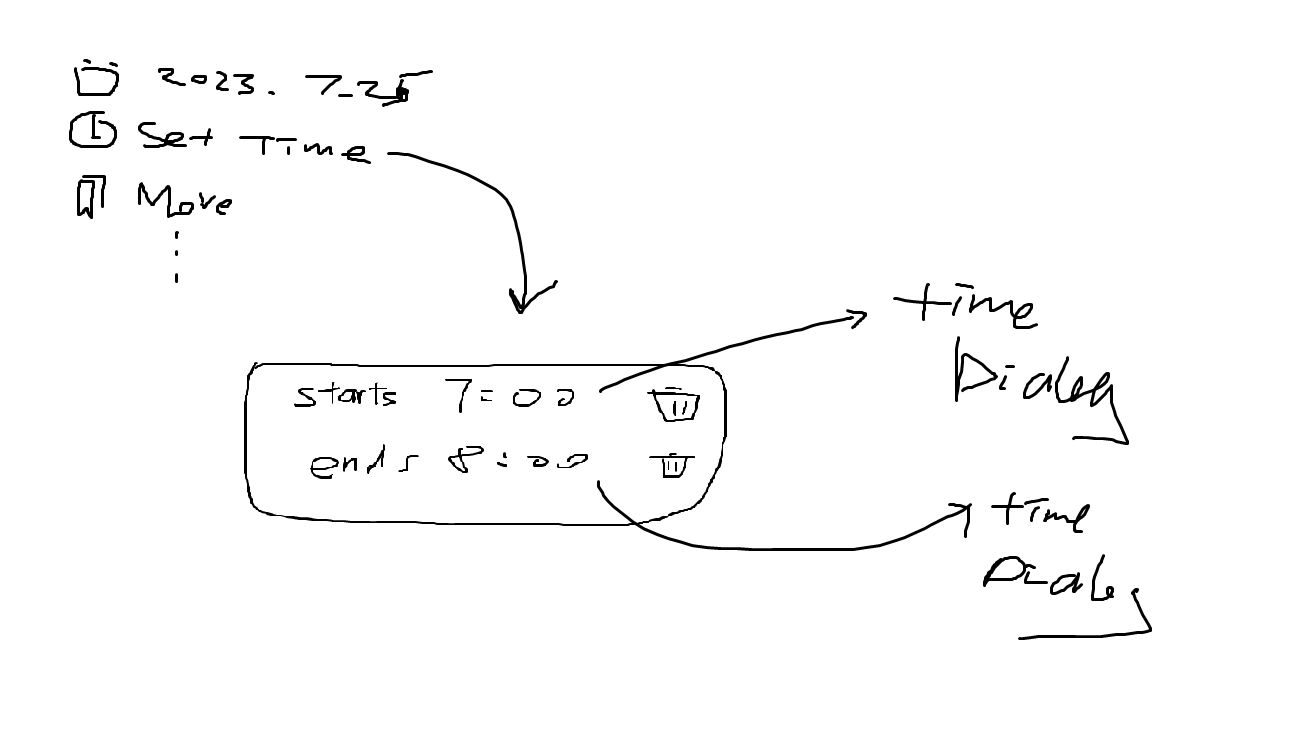 2023. 7-25
Set Time
Move
starts 7:00
ends 8:00
time
Dialog
time
Dialog